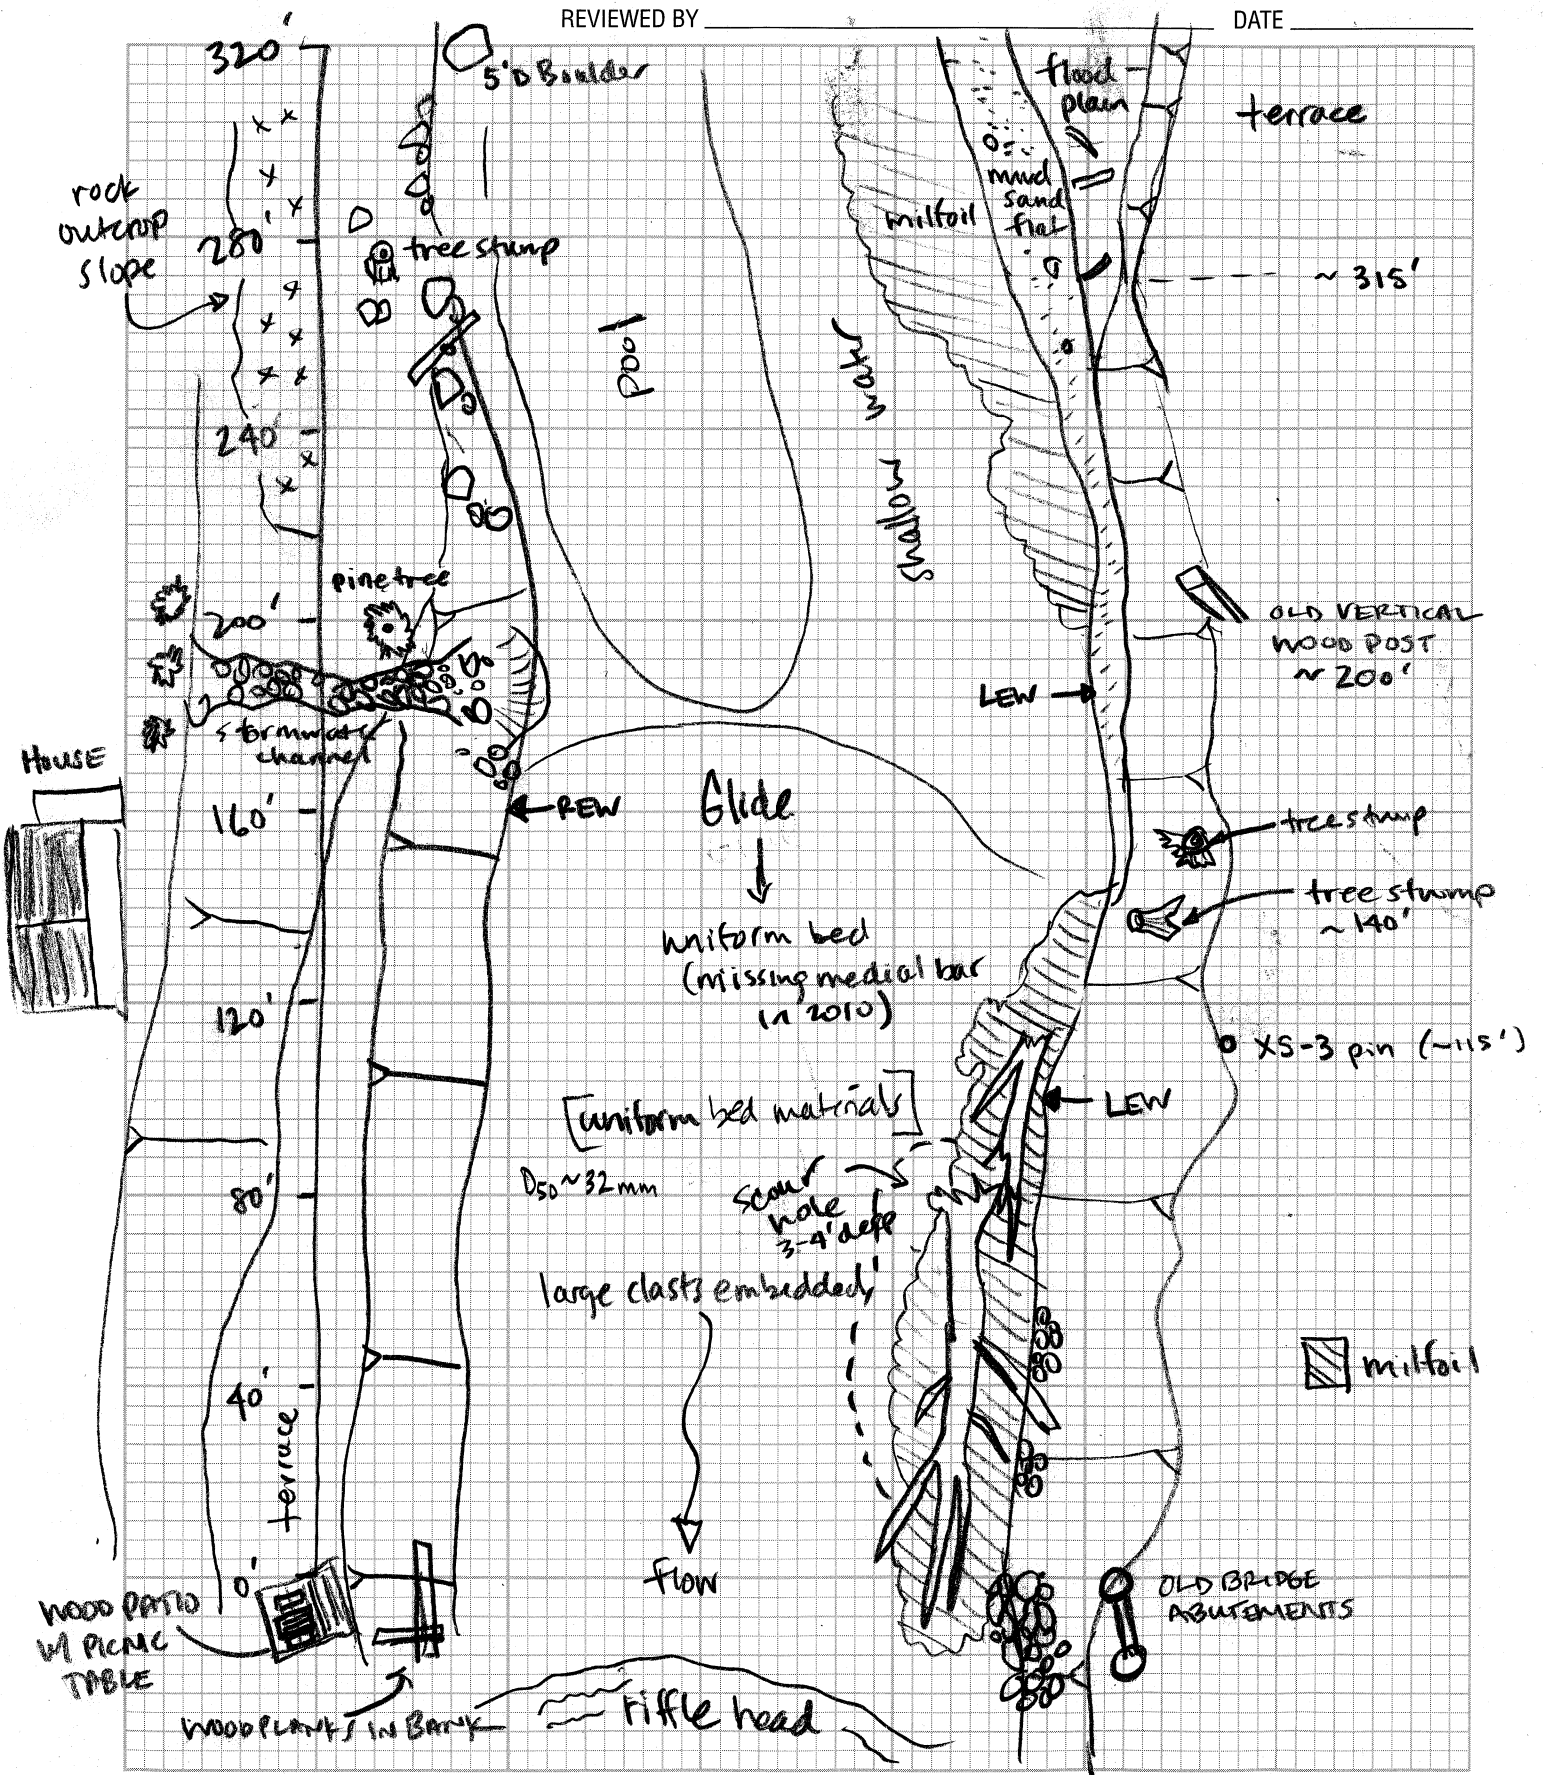 REVIEWED BY
DATE
320'
5'D Boulder
flood
plain
terrace
rock
outcrop
slope
mud
sand
flat
milfoil
280'
tree stump
~ 315'
Pool
shallow water
240'
pine tree
200'
OLD VERTICAL
WOOD POST
~ 200'
LEW
stormwater
channel
HOUSE
160'
REW
Glide
tree stump
tree stump
~ 140'
uniform bed
(missing medial bar
in 2010)
120'
XS-3 pin (~115')
[uniform bed materials]
LEW
80'
D50 ~ 32mm
scour
hole
3-4' deep
large clasts embedded
milfoil
40'
terrace
0'
flow
WOOD PATIO
W/ PICNIC
TABLE
OLD BRIDGE
ABUTEMENTS
WOOD PLANKS IN BANK
riffle head